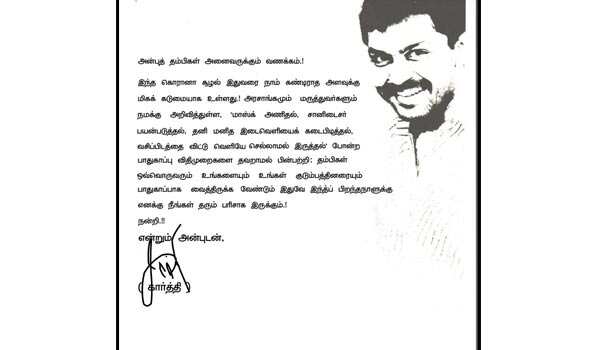 அன்புத் தம்பிகள் அனைவருக்கும் வணக்கம்.!
இந்த கொரானா சூழல் இதுவரை நாம் கண்டிராத அளவுக்கு
மிகக் கடுமையாக உள்ளது.! அரசாங்கமும் மருத்துவர்களும்
நமக்கு அறிவித்துள்ள, 'மாஸ்க் அணிதல், சானிடைசர்
பயன்படுத்தல், தனி மனித இடைவெளியைக் கடைபிடித்தல்,
வசிப்பிடத்தை விட்டு வெளியே செல்லாமல் இருத்தல்' போன்ற
பாதுகாப்பு விதிமுறைகளை தவறாமல் பின்பற்றி; தம்பிகள்
ஒவ்வொருவரும் உங்களையும் உங்கள் குடும்பத்தினரையும்
பாதுகாப்பாக வைத்திருக்க வேண்டும் இதுவே இந்தப் பிறந்தநாளுக்கு
எனக்கு நீங்கள் தரும் பரிசாக இருக்கும்.!
நன்றி.!!
என்றும் அன்புடன்,
( கார்த்தி )